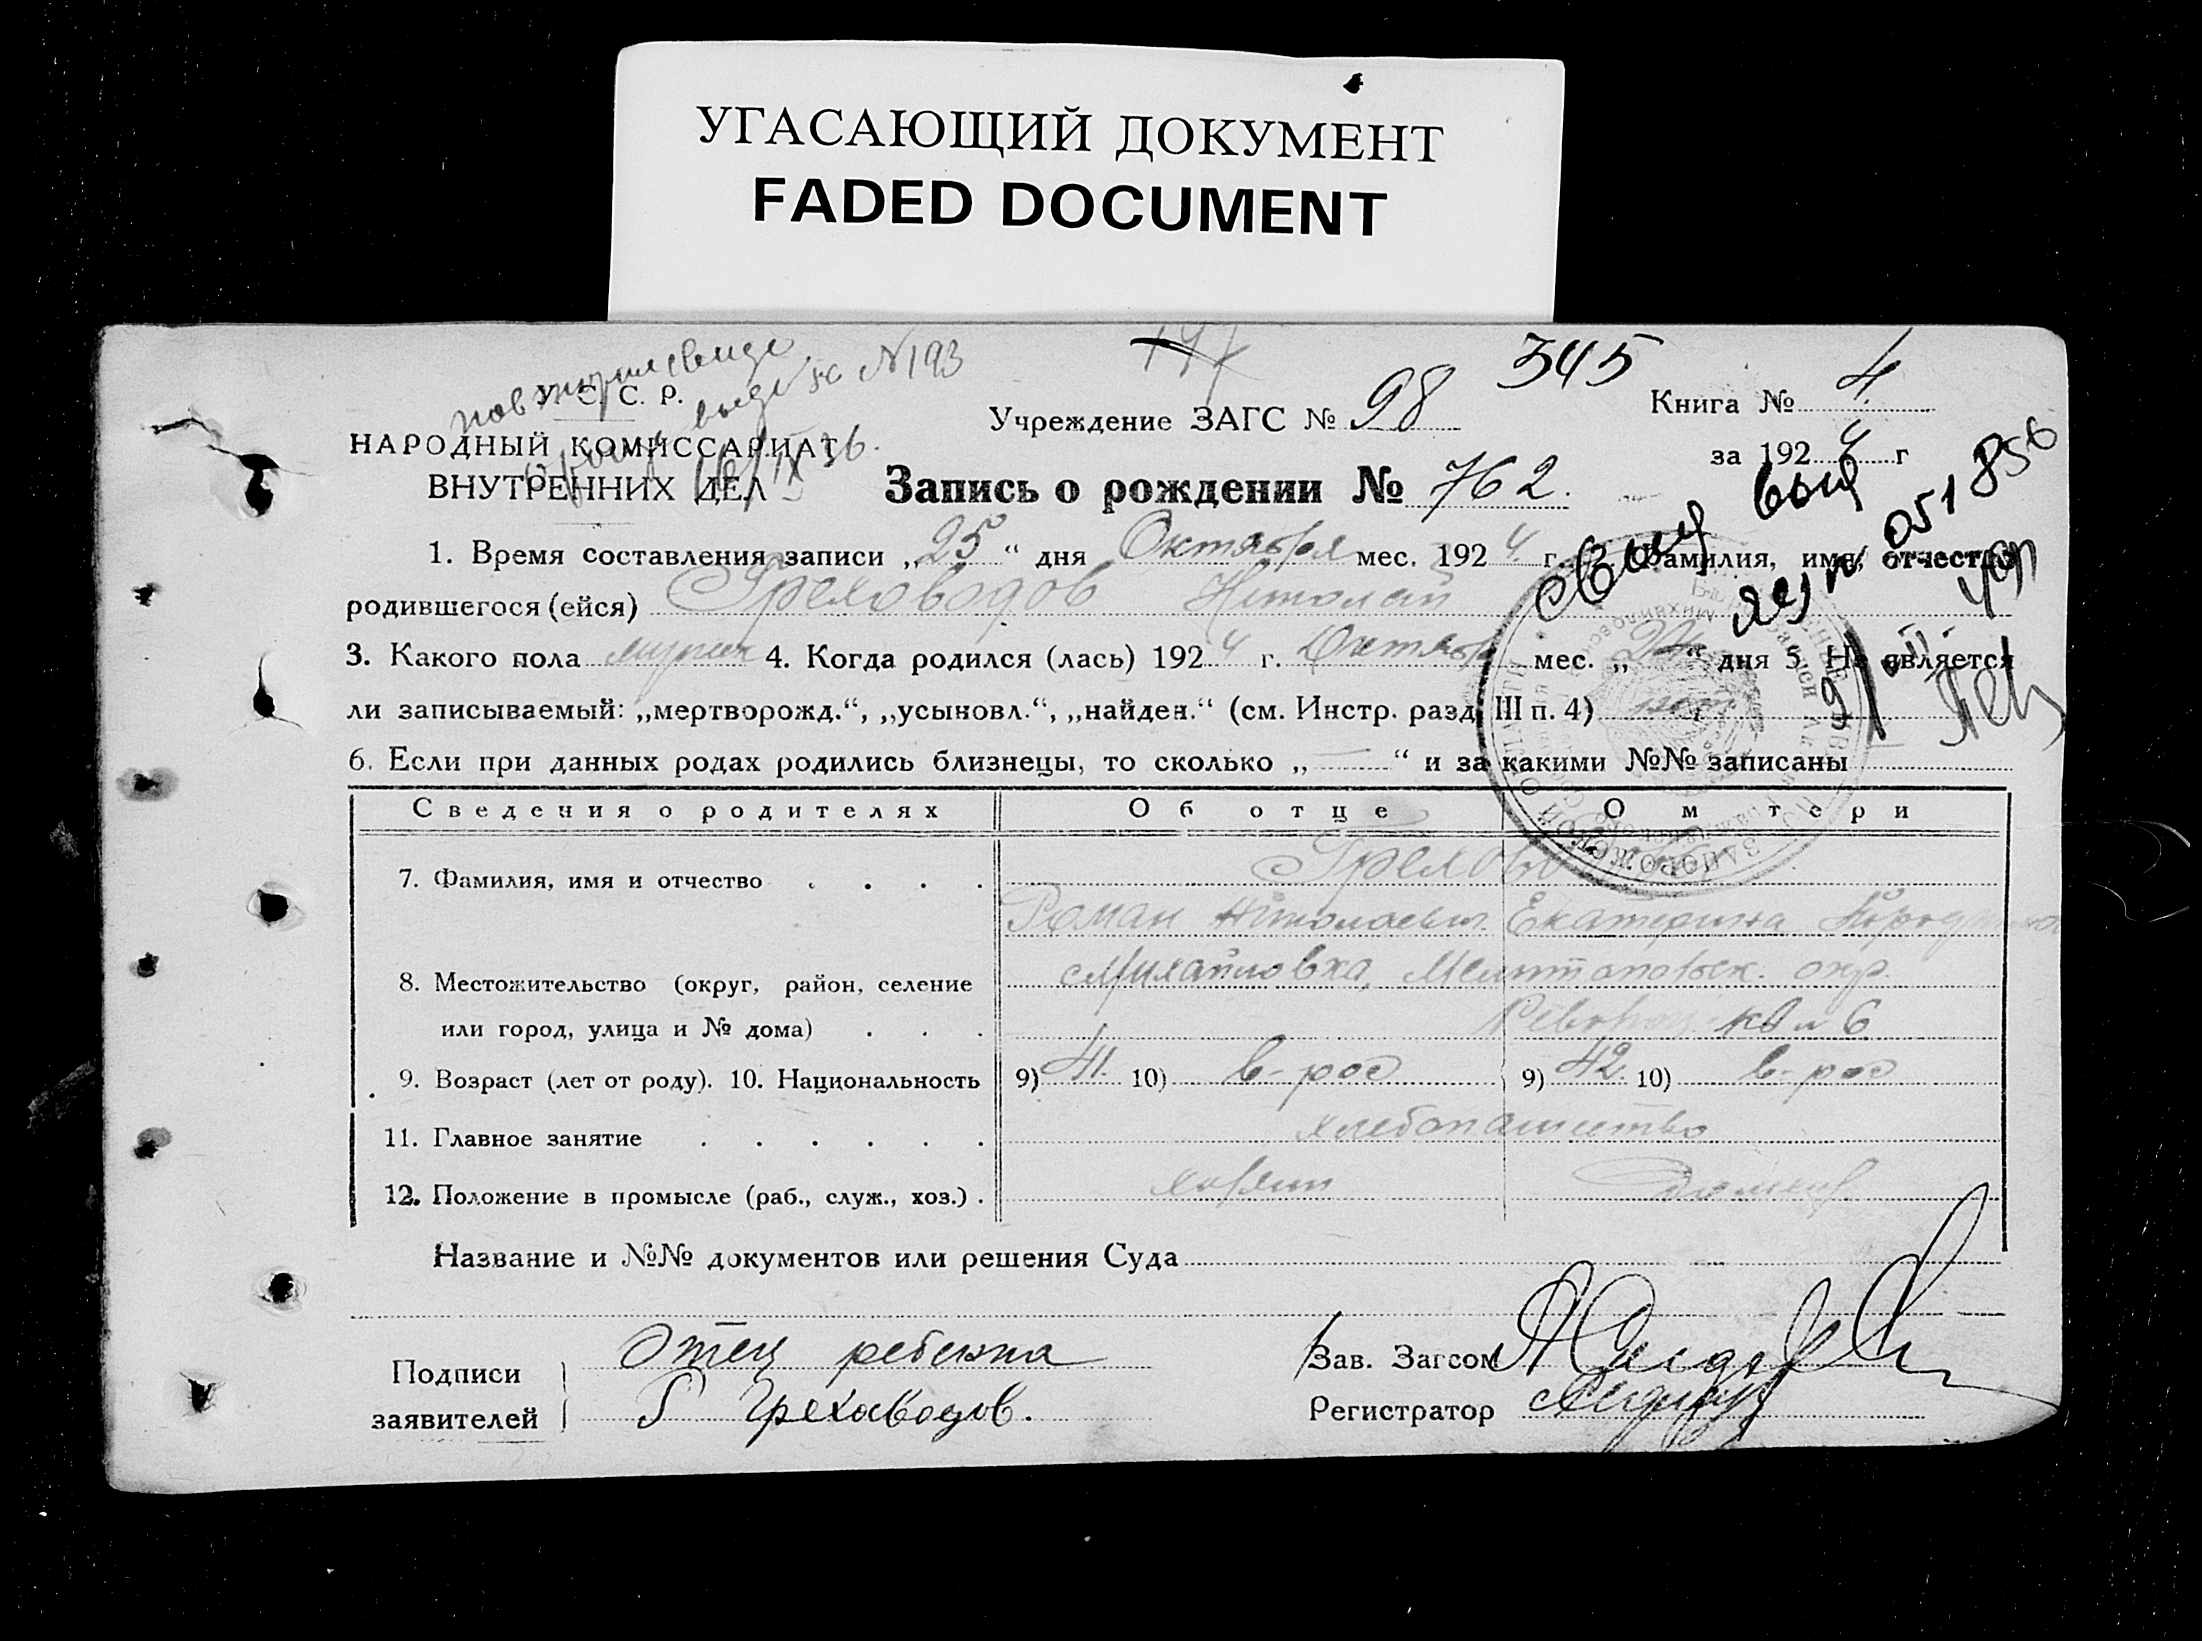 УГАСАЮЩИЙ ДОКУМЕНТ
FADED DOCUMENT
У. С. С. Р.
НАРОДНЫЙ КОМИССАРИАТ
ВНУТРЕННИХ ДЕЛ
№193
345
Учреждение ЗАГС № 98
Книга № 4
за 1924 г
Запись о рождении № 762.
051856
1. Время составления записи „25“ дня Октября мес. 1924 г. 2. Фамилия, имя, отчество
родившегося (ейся) Греховодов Николай
3. Какого пола мужск 4. Когда родился (лась) 1924 г. Октября мес. „24“ дня 5. Не является
ли записываемый: „мертворожд.“, „усыновл.“, „найден.“ (см. Инстр. разд. III п. 4)
6. Если при данных родах родились близнецы, то сколько „—“ и за какими №№ записаны
Сведения о родителях Об отце О м тери
7. Фамилия, имя и отчество
Роман Николаевич Екатерина
8. Местожительство (округ, район, селение с Михайловка, Мелитопольск. окр.
или город, улица и № дома) кв № 6
9. Возраст (лет от роду). 10. Национальность 9) 41. 10) в-рос 9) 42. 10) в-рос
11. Главное занятие хлебопашество
12. Положение в промысле (раб., служ., хоз.) хозяин
Название и №№ документов или решения Суда
Подписи
заявителей
Отец ребенка
Р Греховодов.
Зав. Загсом
Регистратор